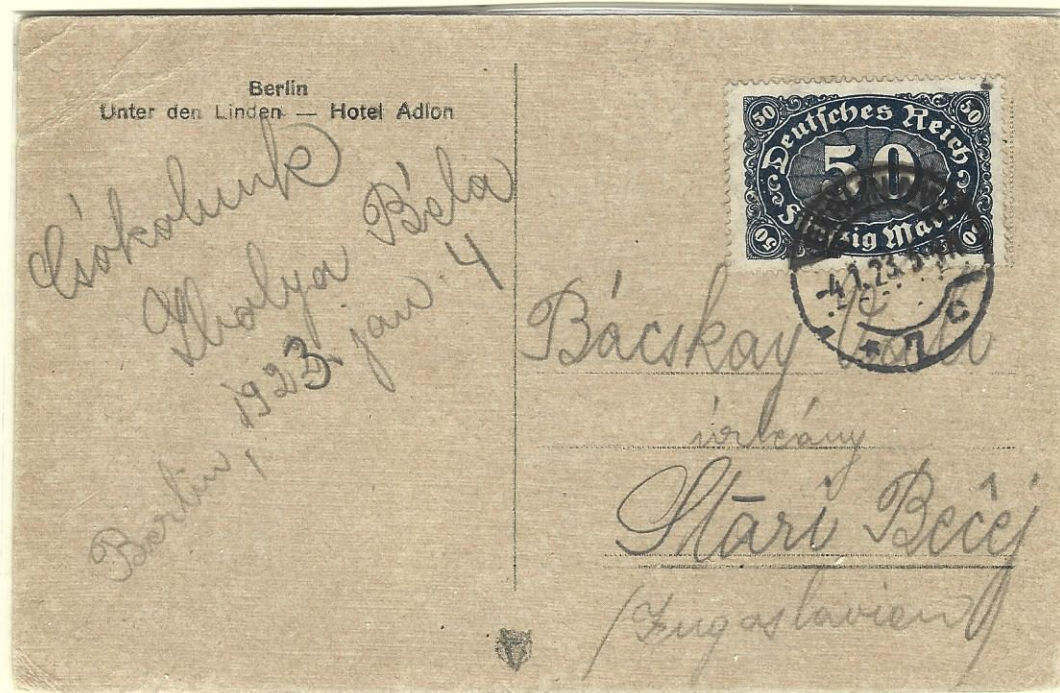 Berlin
Unter den Linden — Hotel Adlon
Csókolunk
Ibolya Béla
Berlin, 1923. jan. 4
50 50
Deutsches Reich
50
Fünfzig Mark
50 50
-4.1.23.
c
Bácskay
úrleány
Stari Bečej
(Jugoslavien)